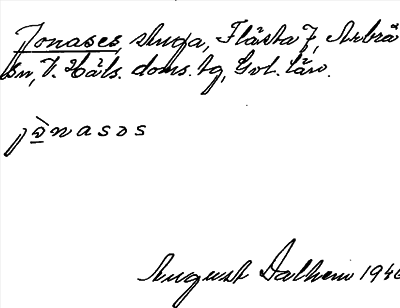 Jonases, stuga, Flästa 7, Arbrå
sn, V. Häls. doms. tg, Gvl. län.
jònasos
August Dalhem 1940